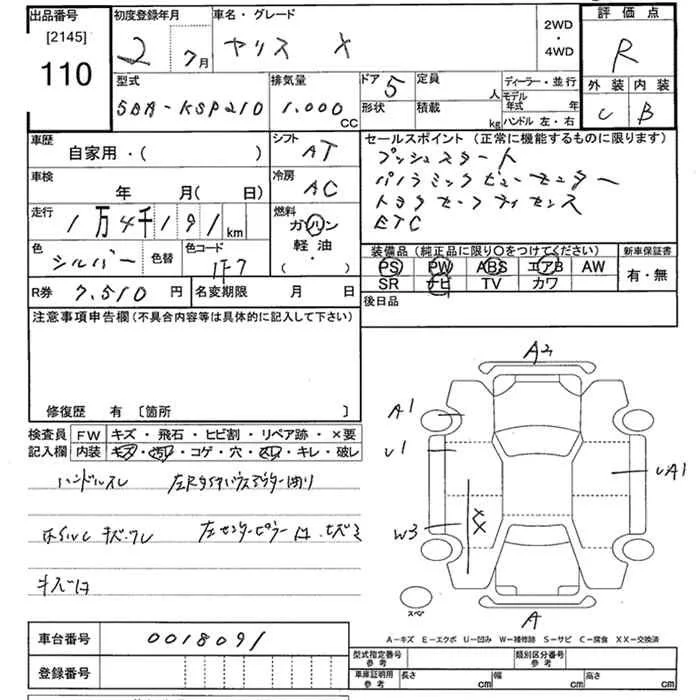 出品番号 [2145] 110
初度登録年月 2 7月
車名・グレード ヤリス X
2WD・4WD
評価点 R
外装 C 内装 B
型式 5BA-KSP210
排気量 1.000 CC
ドア 5
形状
定員 人
積載 kg
ディーラー・並行
モデル年式 年
ハンドル 左・右
車歴 自家用・( )
シフト AT
セールスポイント (正常に機能するものに限ります)
プッシュスタート
パノラミックビューモニター
トヨタセーフティセンス
ETC
車検 年 月( 日)
冷房 AC
走行 1万4千191km
燃料 ガソリン 軽油 ・ ( )
色 シルバー 色替 色コード 1F7
装備品 (純正品に限り○をつけてください)
新車保証書 有・無
PS PW ABS エアB AW
SR ナビ TV カワ
R券 7.510 円
名変期限 月 日
後日品
注意事項申告欄 (不具合内容等は具体的に記入して下さい)
修復歴 有 [箇所 ]
検査員記入欄
FW キズ・飛石・ヒビ割・リペア跡・×要
内装 キズ・汚れ・コゲ・穴・スレ・キレ・破レ
ハンドルスレ
キズ・ワレ
キズ
A2
A1
U1
UA1
W3
XX
A
スペア
A-キズ E-エクボ U-凹み W-補修跡 S-サビ C-腐食 XX-交換済
車台番号 0018091
登録番号
型式指定番号 参考
類別区分番号 参考
車庫証明用 参考 長さ cm 幅 cm 高さ cm